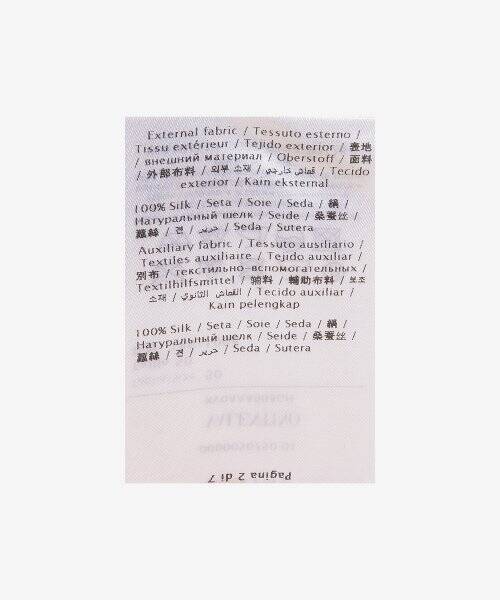 External fabric / Tessuto esterno /
Tissu extérieur / Tejido exterior / 表地
/ внешний материал / Oberstoff / 面料
/ 外部布料 / 외부 소재 / قماش خارجي / Tecido
exterior / Kain eksternal
100% Silk / Seta / Soie / Seda / 絹 /
Натуральный шелк / Seide / 桑蚕丝 /
蠶絲 / 견 / حرير / Seda / Sutera
Auxiliary fabric / Tessuto ausiliario /
Textiles auxiliaire / Tejido auxiliar /
別布 / текстильно-вспомогательных /
Textilhilfsmittel / 辅料 / 輔助布料 / 보조
소재 / القماش الثانوي / Tecido auxiliar /
Kain pelengkap
100% Silk / Seta / Soie / Seda / 絹 /
Натуральный шелк / Seide / 桑蚕丝 /
蠶絲 / 견 / حرير / Seda / Sutera
VALENTINO
Pagina 2 di 7